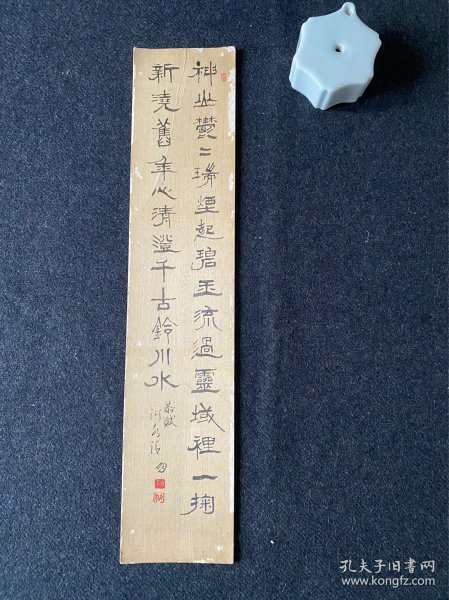 神山鬱〻瑞煙起碧玉流過靈域裡一掬
新澆舊年心清澄千古鈴川水
恭賦
孔夫子旧书网
www.kongfz.com